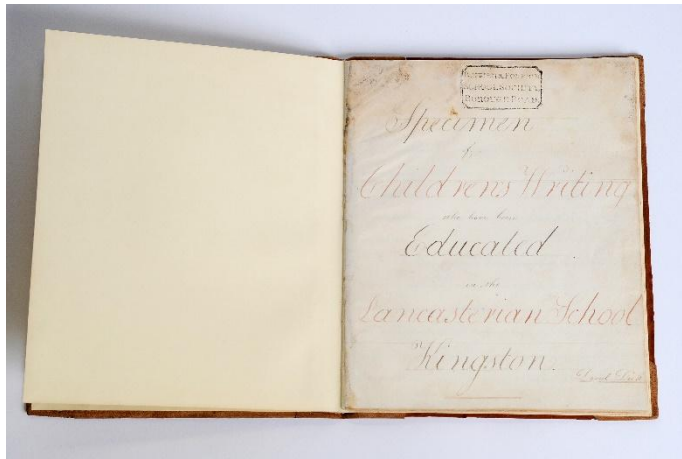 BRITISH & FOREIGN
SCHOOL SOCIETY
BOROUGH ROAD
Specimen
of
Childrens Writing
who have been
Educated
in the
Lancasterian School
Kingston.